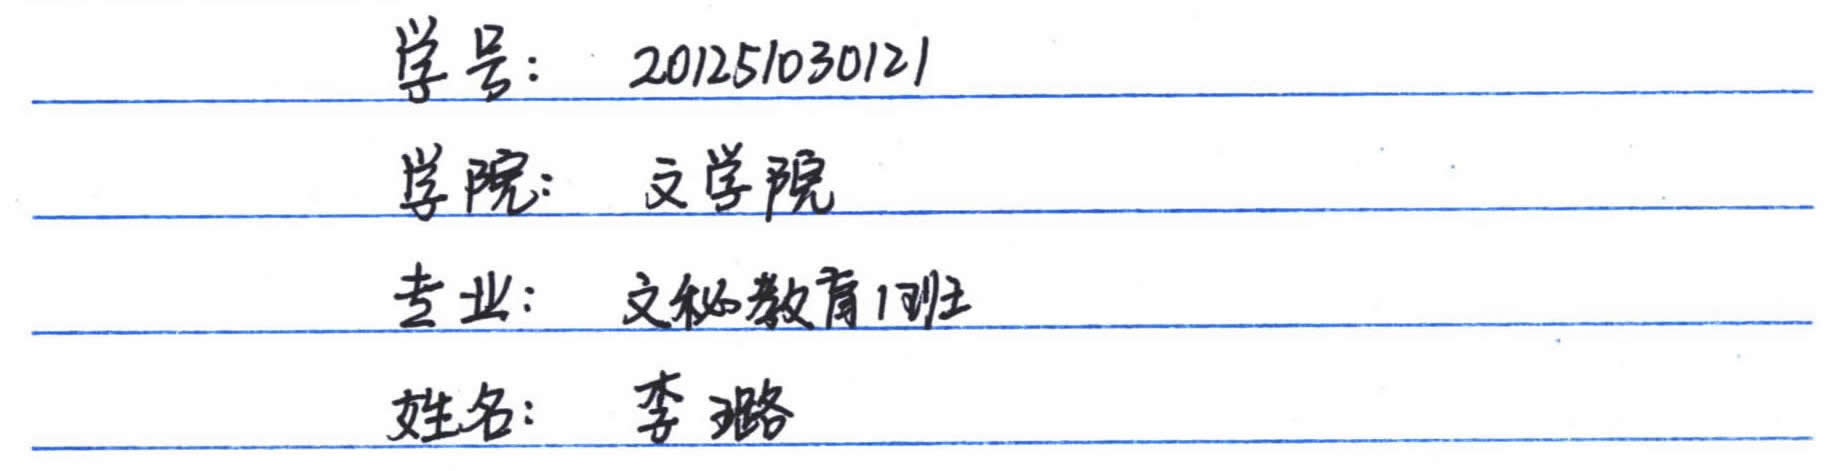 学号: 201251030121
学院: 文学院
专业: 文秘教育1班
姓名: 李璐